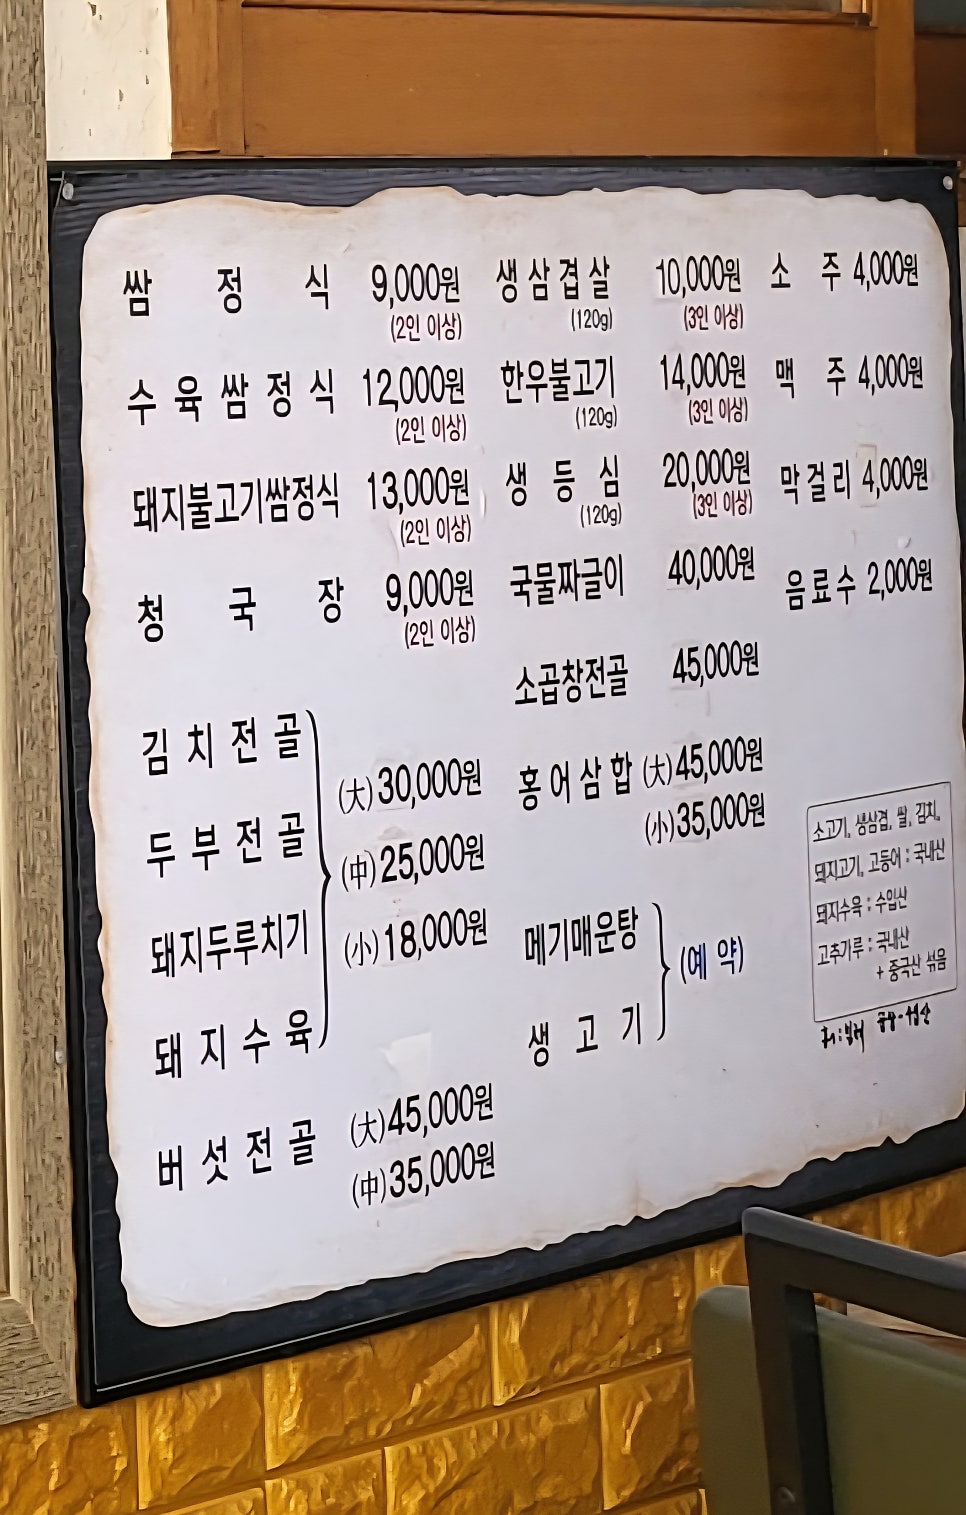 쌈 정 식 9,000원
(2인 이상)
수 육 쌈 정 식 12,000원
(2인 이상)
돼지불고기쌈정식 13,000원
(2인 이상)
청 국 장 9,000원
(2인 이상)
김 치 전 골
두 부 전 골
돼지두루치기
돼 지 수 육
(大)30,000원
(中)25,000원
(小)18,000원
버 섯 전 골 (大)45,000원
(中)35,000원
생 삼 겹 살 10,000원
(120g) (3인 이상)
한우불고기 14,000원
(120g) (3인 이상)
생 등 심 20,000원
(120g) (3인 이상)
국물짜글이 40,000원
소곱창전골 45,000원
홍 어 삼 합 (大)45,000원
(小)35,000원
메기매운탕
생 고 기
(예 약)
소 주 4,000원
맥 주 4,000원
막 걸 리 4,000원
음 료 수 2,000원
소고기, 생삼겹, 쌀, 김치,
돼지고기, 고등어 : 국내산
돼지수육 : 수입산
고추가루 : 국내산
+ 중국산 섞음